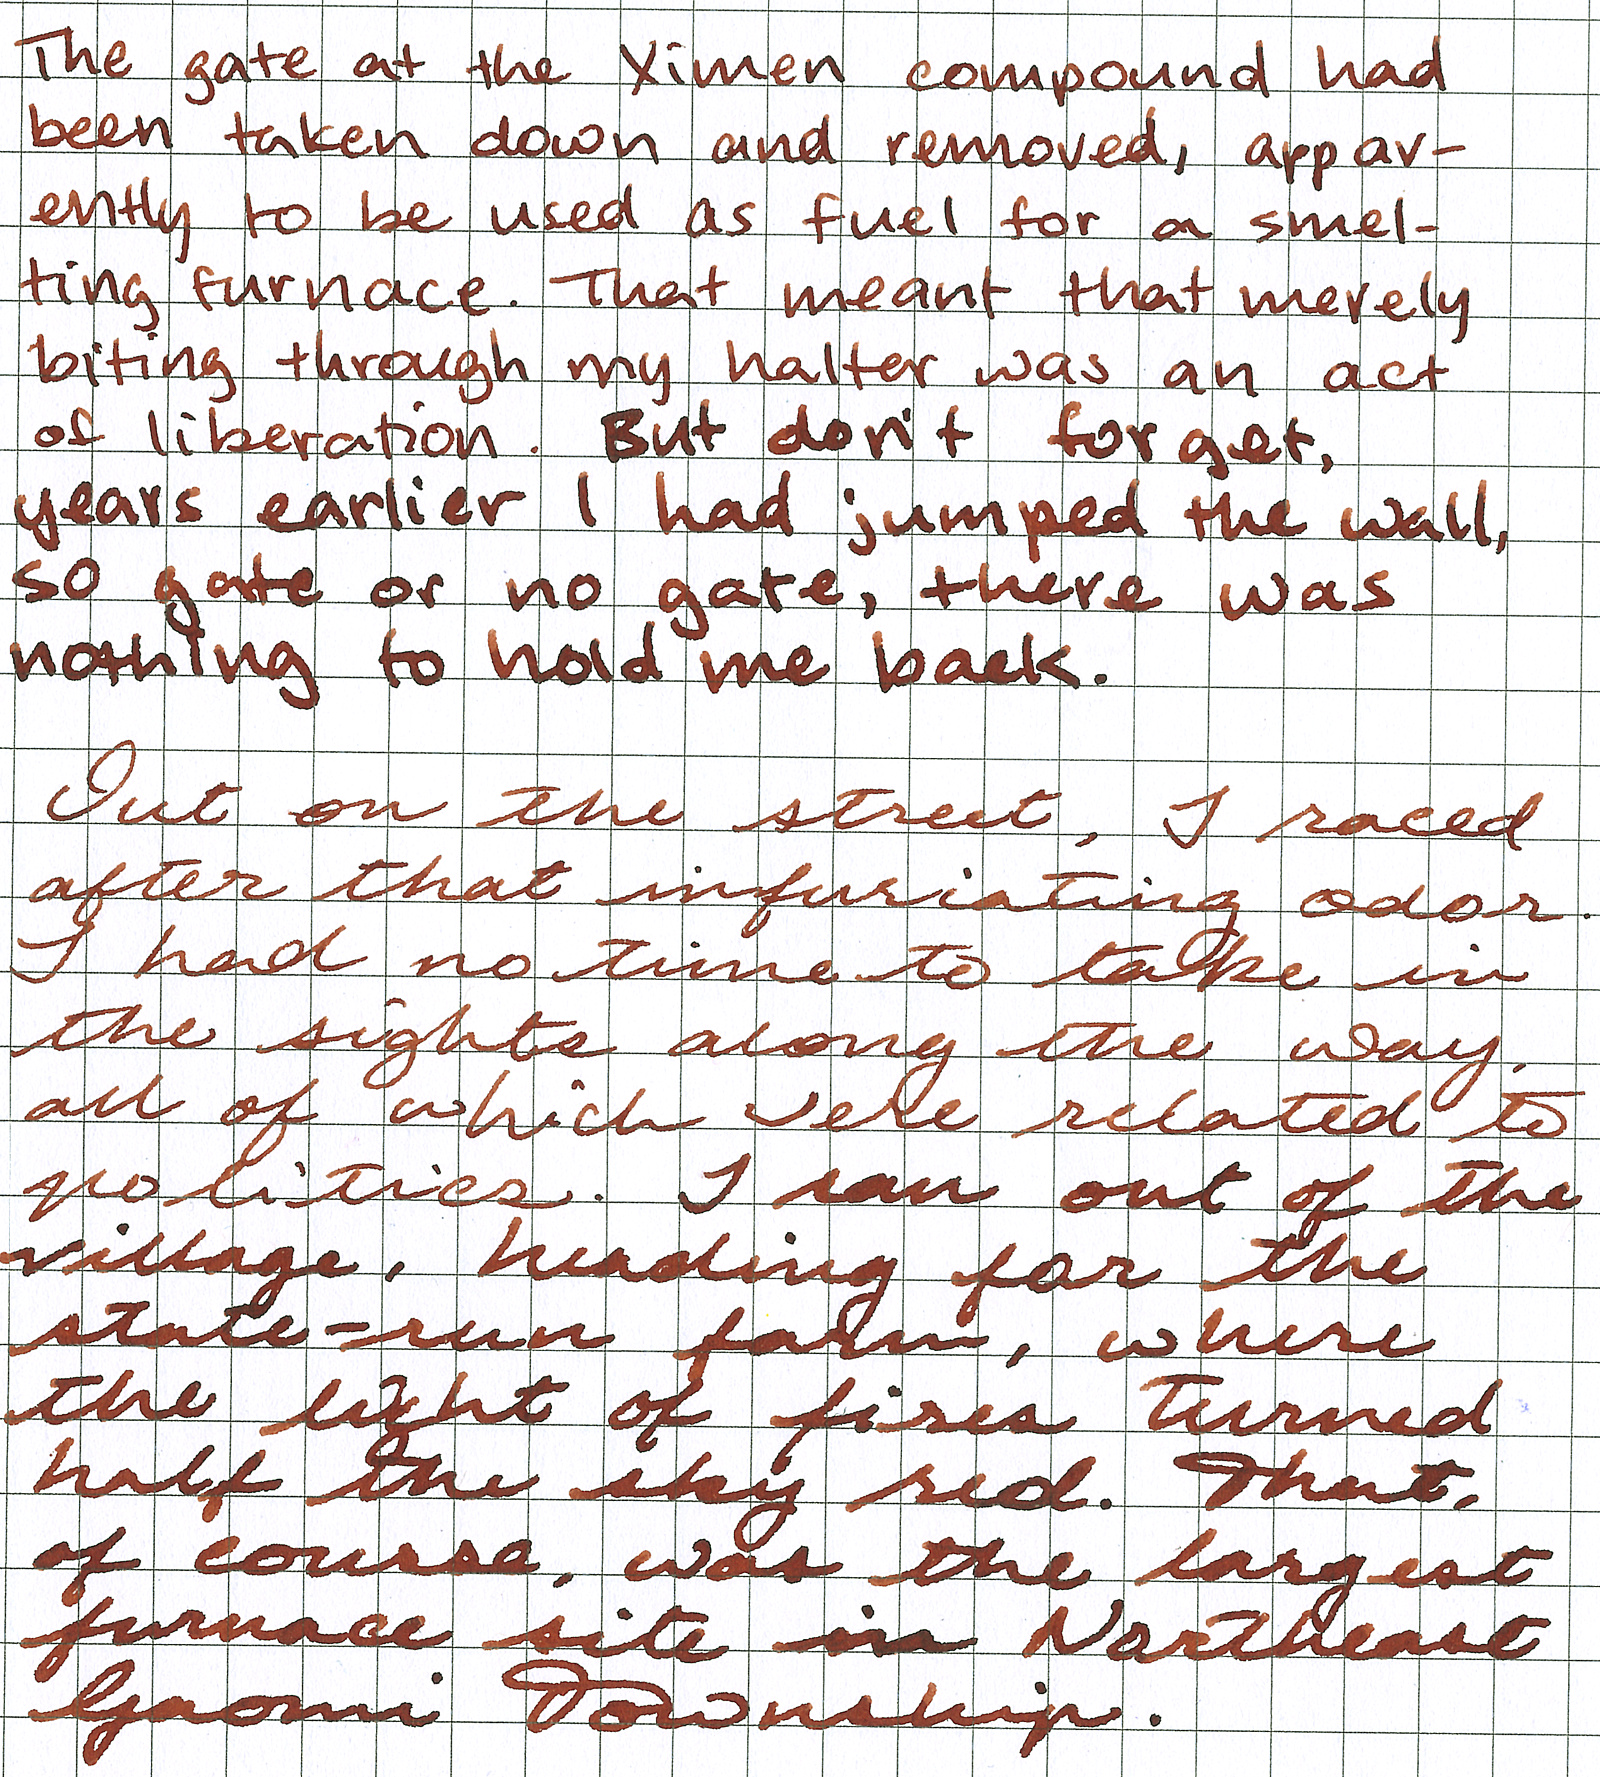 The gate at the Ximen compound had
been taken down and removed, appar-
ently to be used as fuel for a smel-
ting furnace. That meant that merely
biting through my halter was an act
of liberation. But don't forget,
years earlier I had jumped the wall,
so gate or no gate, there was
nothing to hold me back.
Out on the street, I raced
after that infuriating odor.
I had no time to take in
the sights along the way,
all of which were related to
politics. I ran out of the
village, heading for the
state-run farm, where
the light of fires turned
half the sky red. That,
of course, was the largest
furnace site in Northeast
Gaomi Township.